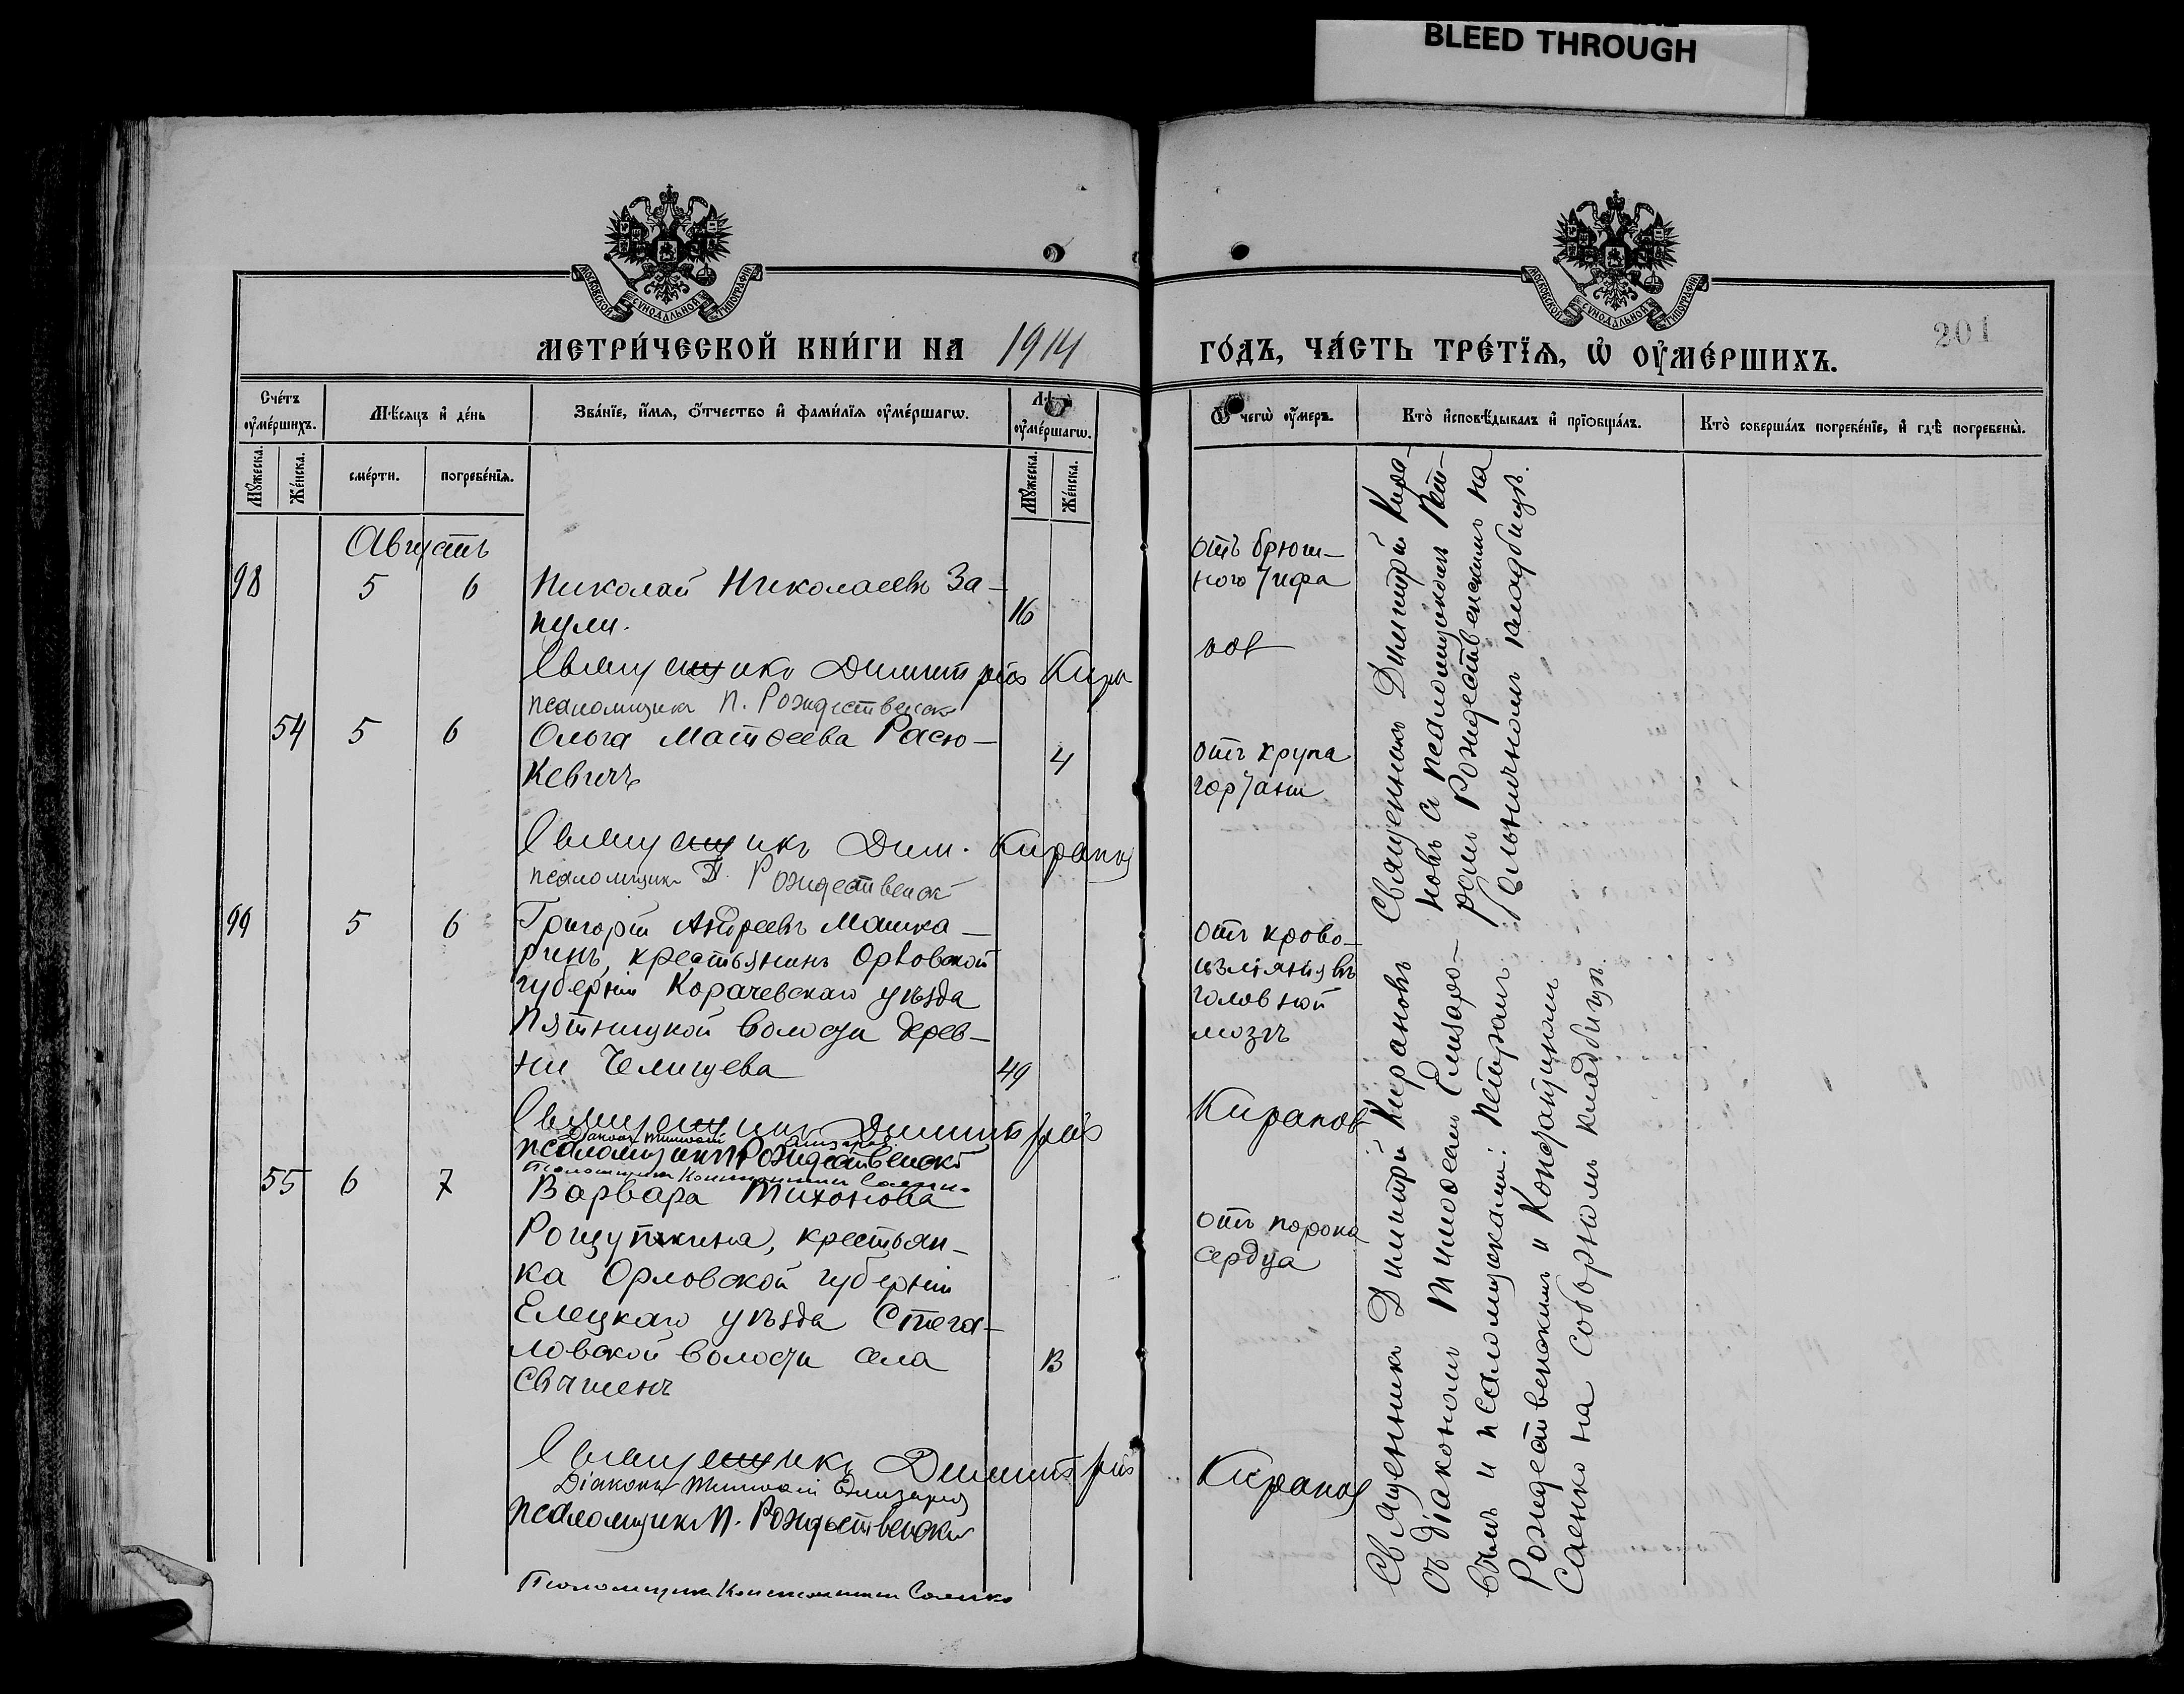 BLEED THROUGH
МОСКОВСКОЙ СУНОДАЛЬНОЙ ТИПОГРАФІИ
МОСКОВСКОЙ СУНОДАЛЬНОЙ ТИПОГРАФІИ
201
МЕТРИ́ЧЕСКОЙ КНИ́ГИ НА 1914
ГО́ДЪ, ЧА́СТЬ ТРЕ́ТЇѦ, Ѡ҆ ОУ҆МЕ́РШИХЪ.
Сче́тъ оу҆ме́ршихъ.
Мѣ́сяцъ и҆ де́нь
Зва́нїе, и҆́мя, ѻ҆́тчество и҆ фами́лїя оу҆ме́ршагѡ.
Лѣ
оу҆ме́ршагѡ.
Ѿ чегѡ̀ оу҆́меръ.
Кто̀ и҆сповѣ́дывалъ и҆ прїѡбща́лъ.
Кто̀ соверша́лъ погребе́нїе, и҆ гдѣ̀ погребены̀.
Му́жеска.
Же́нска.
сме́рти.
погребе́нїя.
Му́жеска.
Же́нска.
Августъ
98 5 6 Николай Николаевъ За-
пули. 16
отъ брюш-
ного тифа
Священникъ Димитрій Кира
нов
псаломщикъ П. Рождественскі
54 5 6 Ольга Матѳеева Расю-
кевичъ 4
отъ крупа
гортани
Священникъ Дим. Киранов
псаломщикъ П. Рождественскі
99 5 6 Григорій Андреевъ Машка-
ринъ, крестьянинъ Орловской
губерніи Карачевскаго уѣзда
Пятницкой волости дерев-
ни Челищева 49
отъ крово-
изліянія въ
головной
мозгъ
Священникъ Димитрій Киранов
Діаконъ Тимоѳей Елизаров
псаломщикъ П. Рождественскі
Псаломщикъ Константин Саенко
55 6 7 Варвара Тихонова
Рощупкина, крестьян-
ка Орловской губерніи
Елецкаго уѣзда Стега-
ловской волости села
13
отъ порока
сердца
Священникъ Димитрій Киранов
Діаконъ Тимоѳей Елизаров
псаломщикъ П. Рождественскій
Псаломщикъ Константин Саенко
Священникъ Димитрій Кира-
новъ съ псаломщикомъ Пет-
ромъ Рождественскимъ на
больничномъ кладбищѣ.
Священникъ Димитрій Кирановъ
съ діакономъ Тимоѳеем Елизаро-
вымъ и псаломщиками: Петромъ
Рождественскимъ и Константиномъ
Саенко на соборномъ кладбищѣ.